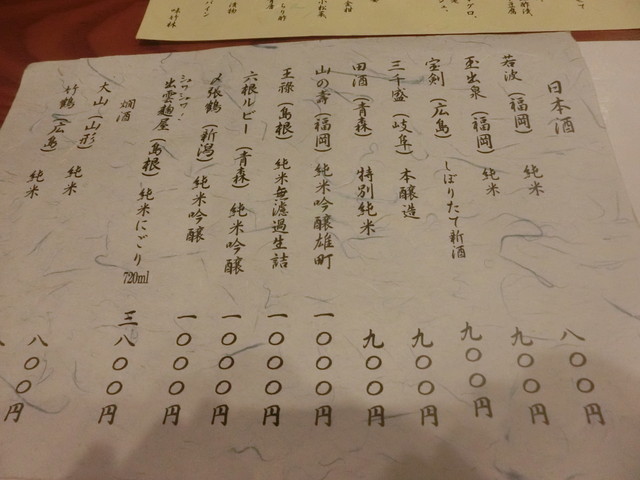 日本酒
若波（福岡） 純米 八〇〇円
玉出泉（福岡） 純米 九〇〇円
宝剣（広島） しぼりたて新酒 九〇〇円
三千盛（岐阜） 本醸造 九〇〇円
田酒（青森） 特別純米 九〇〇円
山の壽（福岡） 純米吟醸雄町 一〇〇〇円
王祿（島根） 純米無濾過生詰 一〇〇〇円
六根ルビー（青森） 純米吟醸 一〇〇〇円
〆張鶴（新潟） 純米吟醸 一〇〇〇円
シワシワ！
出雲麹屋（島根） 純米にごり 720ml 三八〇〇円
燗酒
大山（山形） 純米 八〇〇円
竹鶴（広島） 純米
金柑
小松菜
漬物
パイン
味竹林